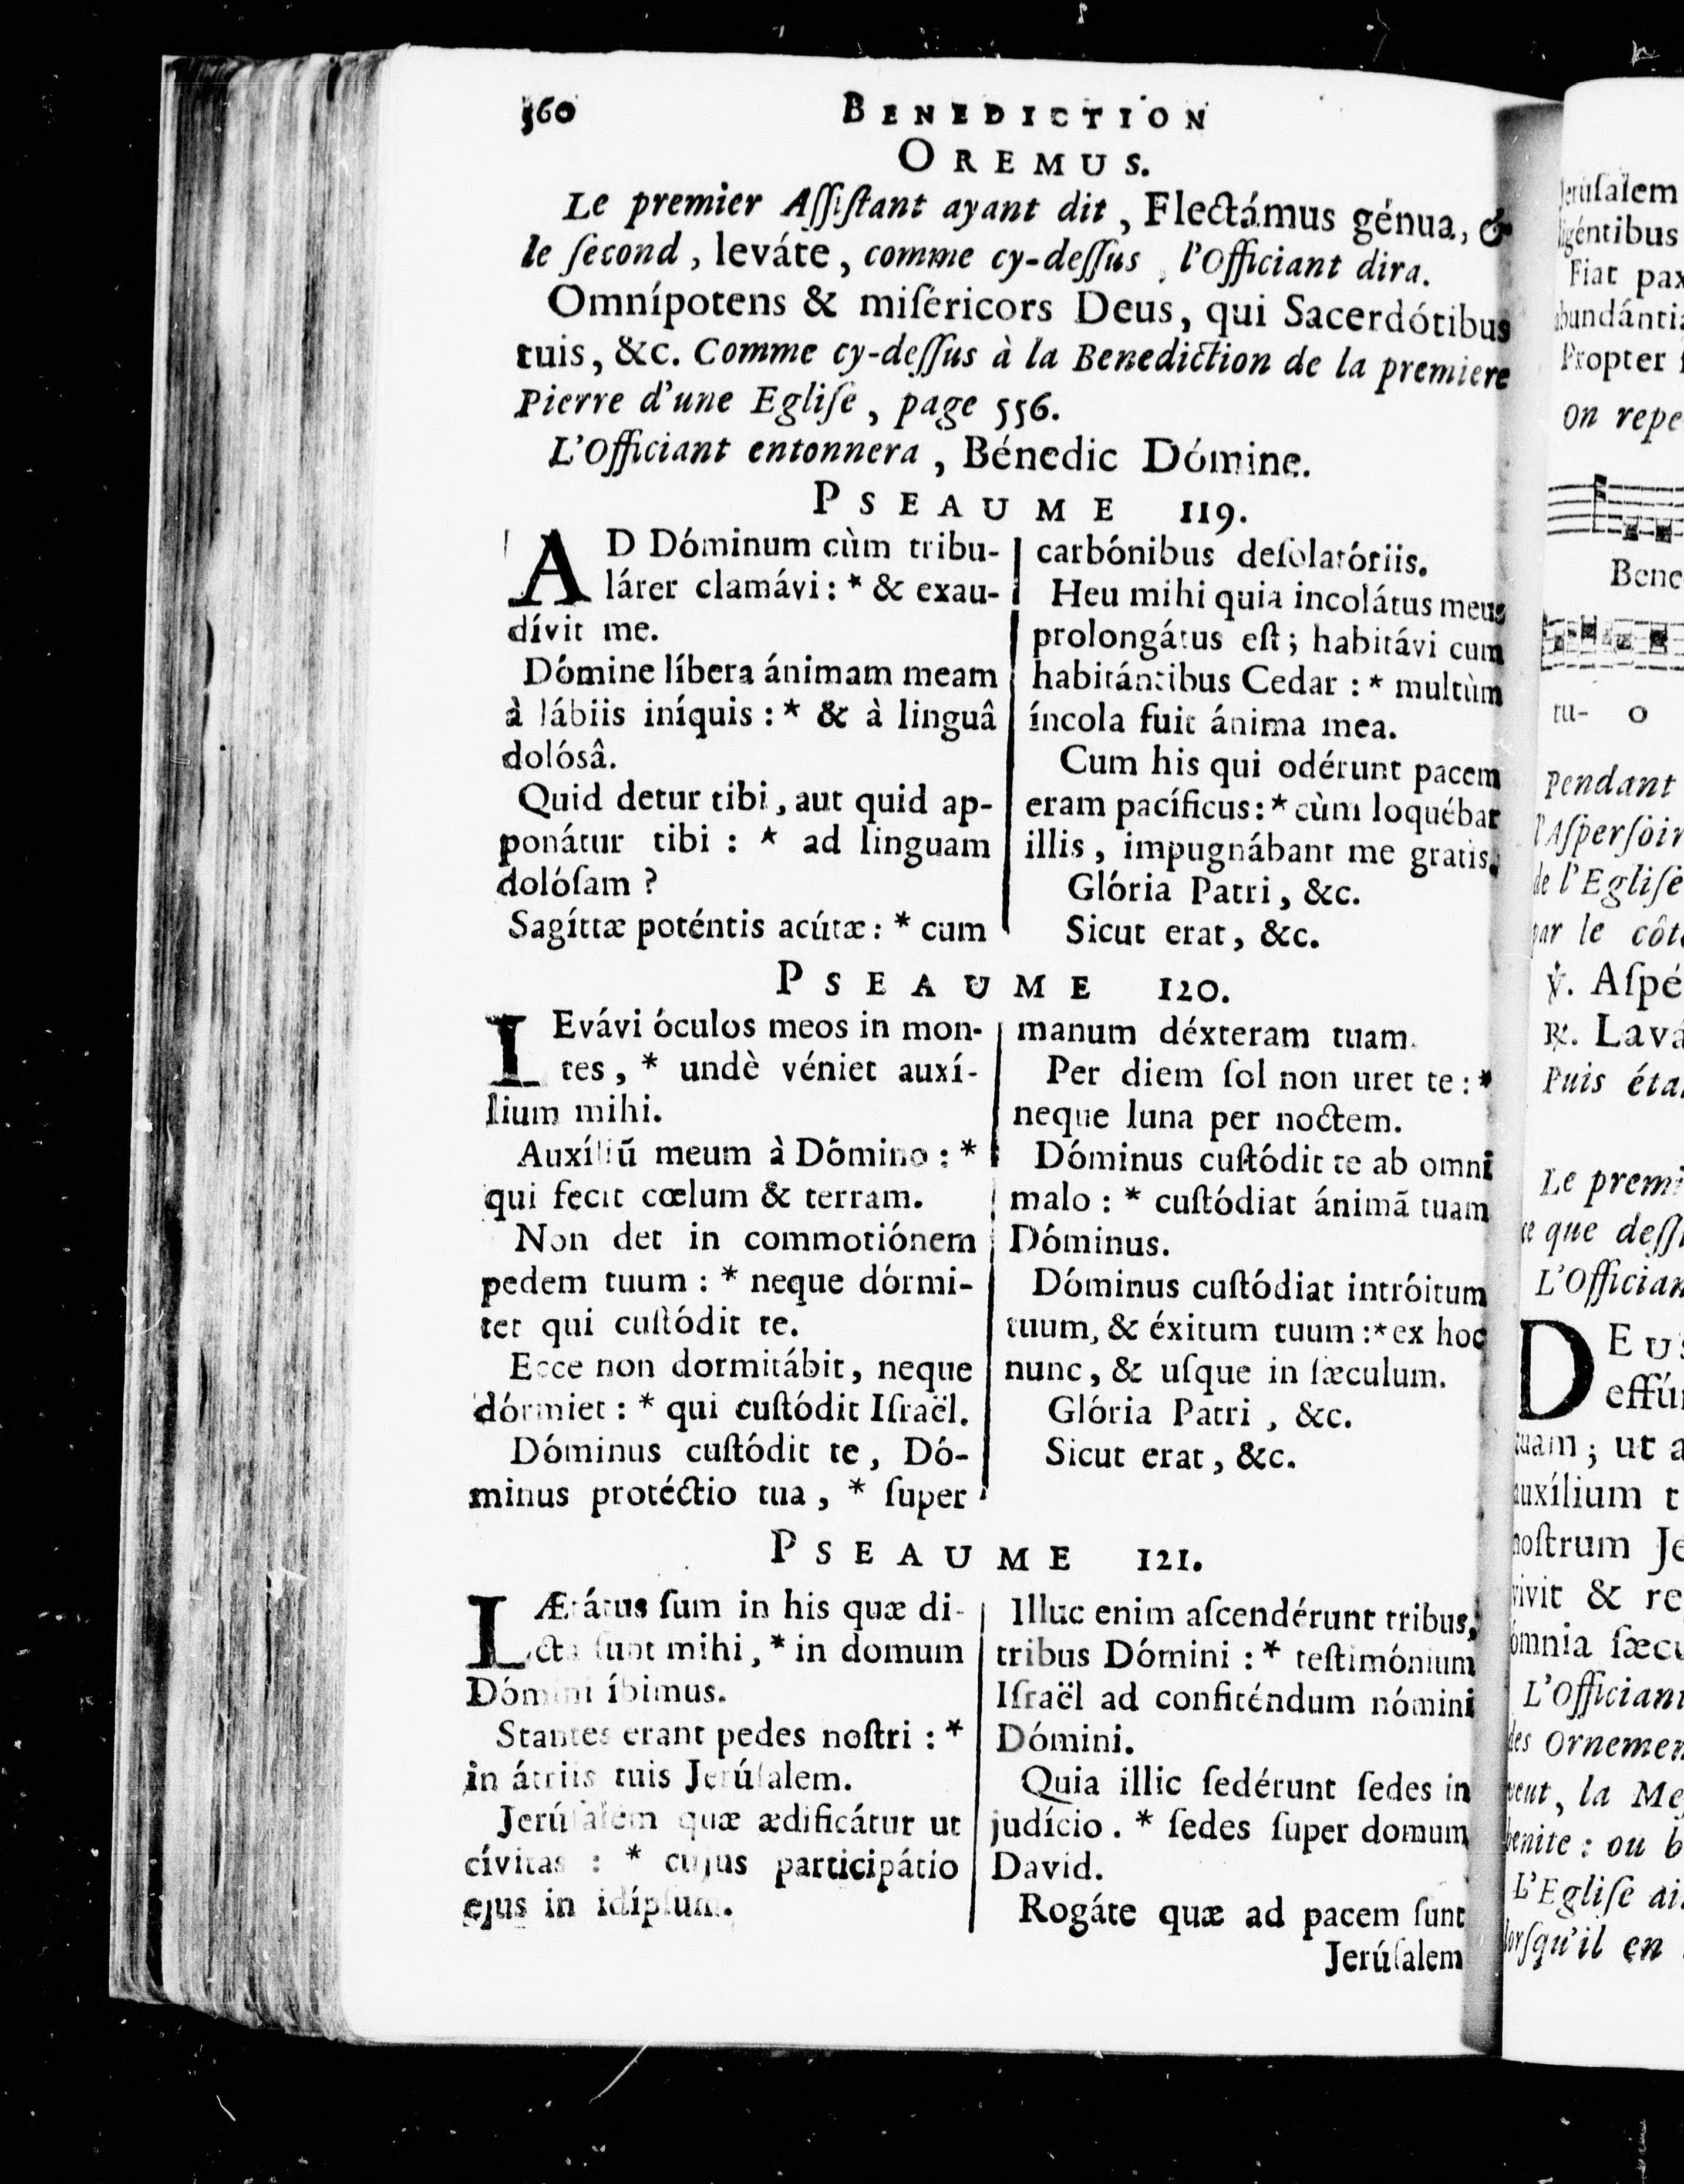 560 BENEDICTION
OREMUS.
Le premier Aſſiſtant ayant dit, Flectámus génua, &
le ſecond, leváte, comme cy-deſſus, l'Officiant dira.
Omnípotens & miſéricors Deus, qui Sacerdótibus
tuis, &c. Comme cy-deſſus à la Benediction de la premiere
Pierre d'une Egliſe, page 556.
L'Officiant entonnera, Bénedic Dómine.
PSEAUME 119.
AD Dóminum cùm tribu-
lárer clamávi: * & exau-
dívit me.
Dómine líbera ánimam meam
à lábiis iníquis: * & à linguâ
dolósâ.
Quid detur tibi, aut quid ap-
ponátur tibi : * ad linguam
dolóſam ?
Sagíttæ poténtis acútæ: * cum
carbónibus deſolatóriis.
Heu mihi quia incolátus meus
prolongátus eſt; habitávi cum
habitántibus Cedar : * multùm
íncola fuit ánima mea.
Cum his qui odérunt pacem
eram pacíficus: * cùm loquébar
illis, impugnábant me gratis.
Glória Patri, &c.
Sicut erat, &c.
PSEAUME 120.
LEvávi óculos meos in mon-
tes, * undè véniet auxí-
lium mihi.
Auxíliū meum à Dómino : *
qui fecit cœlum & terram.
Non det in commotiónem
pedem tuum : * neque dórmi-
tet qui cuſtódit te.
Ecce non dormitábit, neque
dórmiet : * qui cuſtódit Iſraël.
Dóminus cuſtódit te, Dó-
minus protéctio tua, * ſuper
manum déxteram tuam.
Per diem ſol non uret te : *
neque luna per noctem.
Dóminus cuſtódit te ab omni
malo : * cuſtódiat ánimā tuam
Dóminus.
Dóminus cuſtódiat intróitum
tuum, & éxitum tuum : * ex hoc
nunc, & uſque in ſæculum.
Glória Patri, &c.
Sicut erat, &c.
PSEAUME 121.
LÆtátus ſum in his quæ di-
cta ſunt mihi, * in domum
Dómini íbimus.
Stantes erant pedes noſtri : *
in átriis tuis Jerúſalem.
Jerúſalem quæ ædificátur ut
cívitas : * cujus participátio
ejus in idípſum.
Illuc enim aſcendérunt tribus,
tribus Dómini : * teſtimónium
Iſraël ad confiténdum nómini
Dómini.
Quia illic ſedérunt ſedes in
judício. * ſedes ſuper domum
David.
Rogáte quæ ad pacem ſunt
Jerúſalem
Jeruſalem
ligéntibus
Fiat pax
abundánti
Propter
On repe
Bene
tu- o
Pendant
l'Aſperſoir
de l'Egliſe
par le côt
℣. Aſpé
℟. Lavá
Puis éta
Le premi
ce que deſſ
L'Offician
DEUS
effú
tuam; ut a
auxílium t
noſtrum Je
vivit & re
ómnia ſæcu
L'Officiant
des Ornemen
veut, la Meſ
benite : ou b
L'Egliſe ai
lorſqu'il en